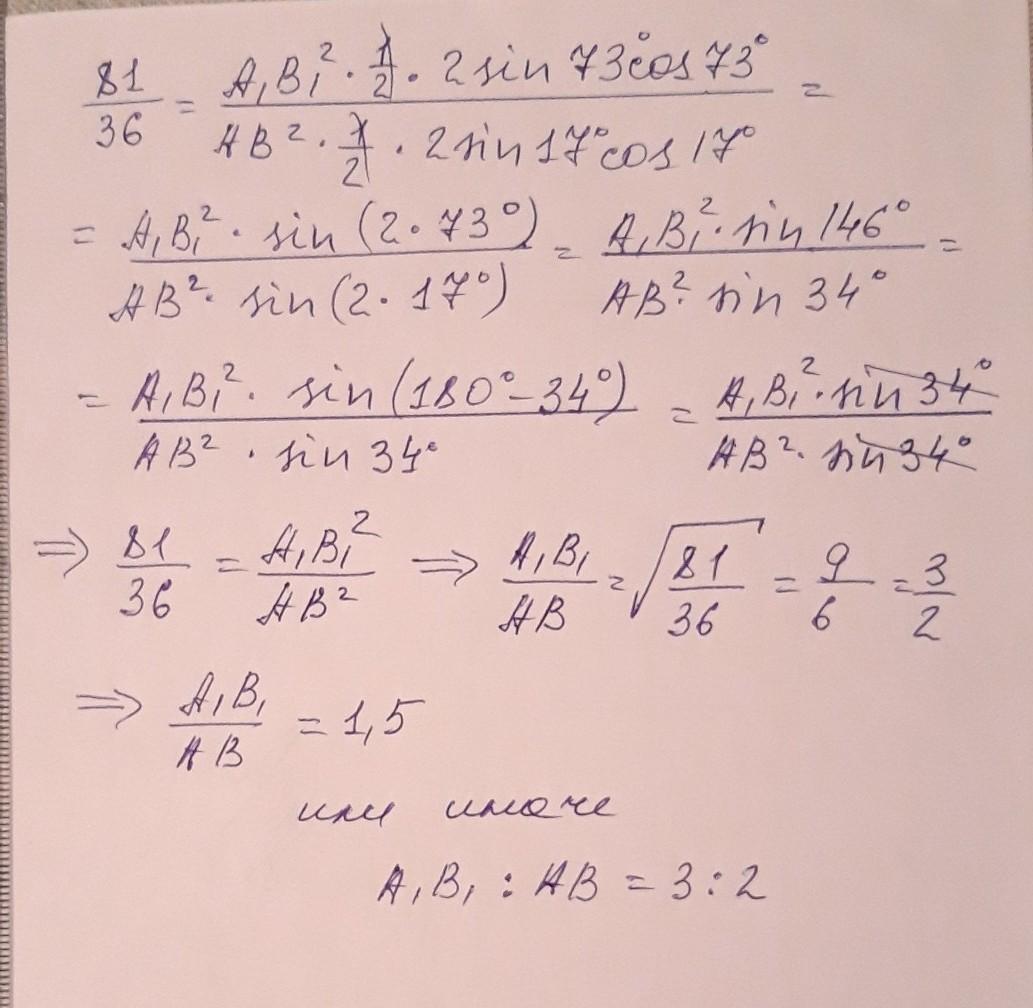 81/36 = A₁B₁² · 1/2 · 2 sin 73° cos 73° / AB² · 1/2 · 2 sin 17° cos 17° =
= A₁B₁² · sin (2 · 73°) / AB² · sin (2 · 17°) = A₁B₁² · sin 146° / AB² · sin 34° =
= A₁B₁² · sin (180° – 34°) / AB² · sin 34° = A₁B₁² · sin 34° / AB² · sin 34°
⇒ 81/36 = A₁B₁² / AB² ⇒ A₁B₁ / AB = √(81/36) = 9/6 = 3/2
⇒ A₁B₁ / AB = 1,5
или иначе
A₁B₁ : AB = 3 : 2